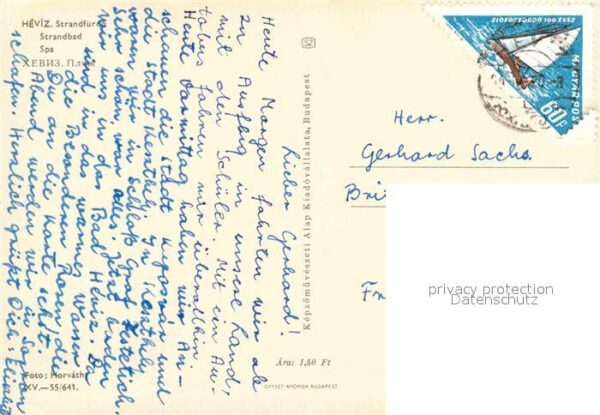 HÉVÍZ. Strandfürdő
Strandbad
Spa
ХЕВИЗ. Пляж
Lieber Gerhard!
Heute Morgen fuhrten wir als
zu Ausflug in unsere Rand,
mit den Schüler. Mit ein Au-
tobus fahren wir überallhin.
Heute Vormittag haben wir An-
schauen die Stadt Kaposvar und
die Stadt Keszthely. In Keszthely
waren wir in Schloß Graf Festetich.
Sehr schön war alles. Jetzt baden
wir uns in das Bad Héviz. Da
und in das warmes Wasser
die Besonderen Rosen, die
Du an die Karte sehst.
Abend werden wir in Sarvar
schlafen. Herzlich grüßt Dich: Elisabet
Foto: Horváth
XV.—55/641.
Képzőművészeti Alap Kiadóvállalata, Budapest
Ára: 1,50 Ft
OFFSET NYOMDA, BUDAPEST
SIÓFOKFÜRDŐ 100 ÉVES
MAGYAR POSTA
60f
Herr.
Gerhard Sachs.
privacy protection
Datenschutz